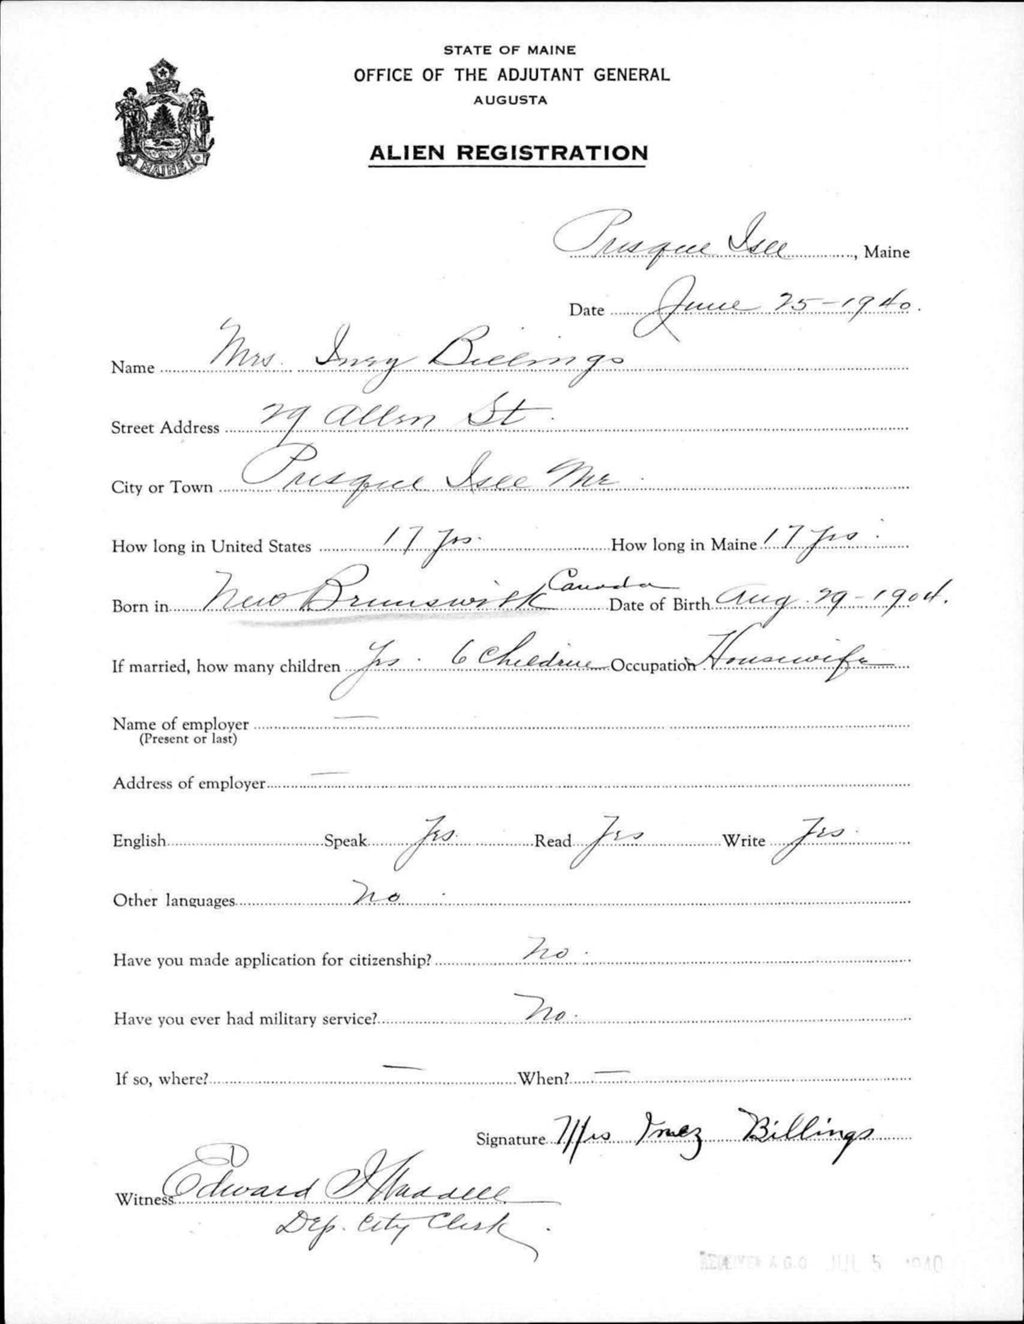 STATE OF MAINE
OFFICE OF THE ADJUTANT GENERAL
AUGUSTA
ALIEN REGISTRATION
MAINE
Presque Isle, Maine
Date June 25-1940.
Name Mrs. Inez Billings
Street Address 29 Allen St.
City or Town Presque Isle Me.
How long in United States 17 yrs. How long in Maine 17 yrs.
Born in New Brunswick Canada Date of Birth Aug 29-1904.
If married, how many children Yes. 6 Children Occupation Housewife
Name of employer —
(Present or last)
Address of employer —
English Speak Yes Read Yes Write Yes.
Other languages No.
Have you made application for citizenship? No.
Have you ever had military service? No.
If so, where? — When? —
Signature Mrs Inez Billings
Witness Edward I Waddell
Dep. City Clerk.
RECEIVED A.G.O. JUL 5 1940